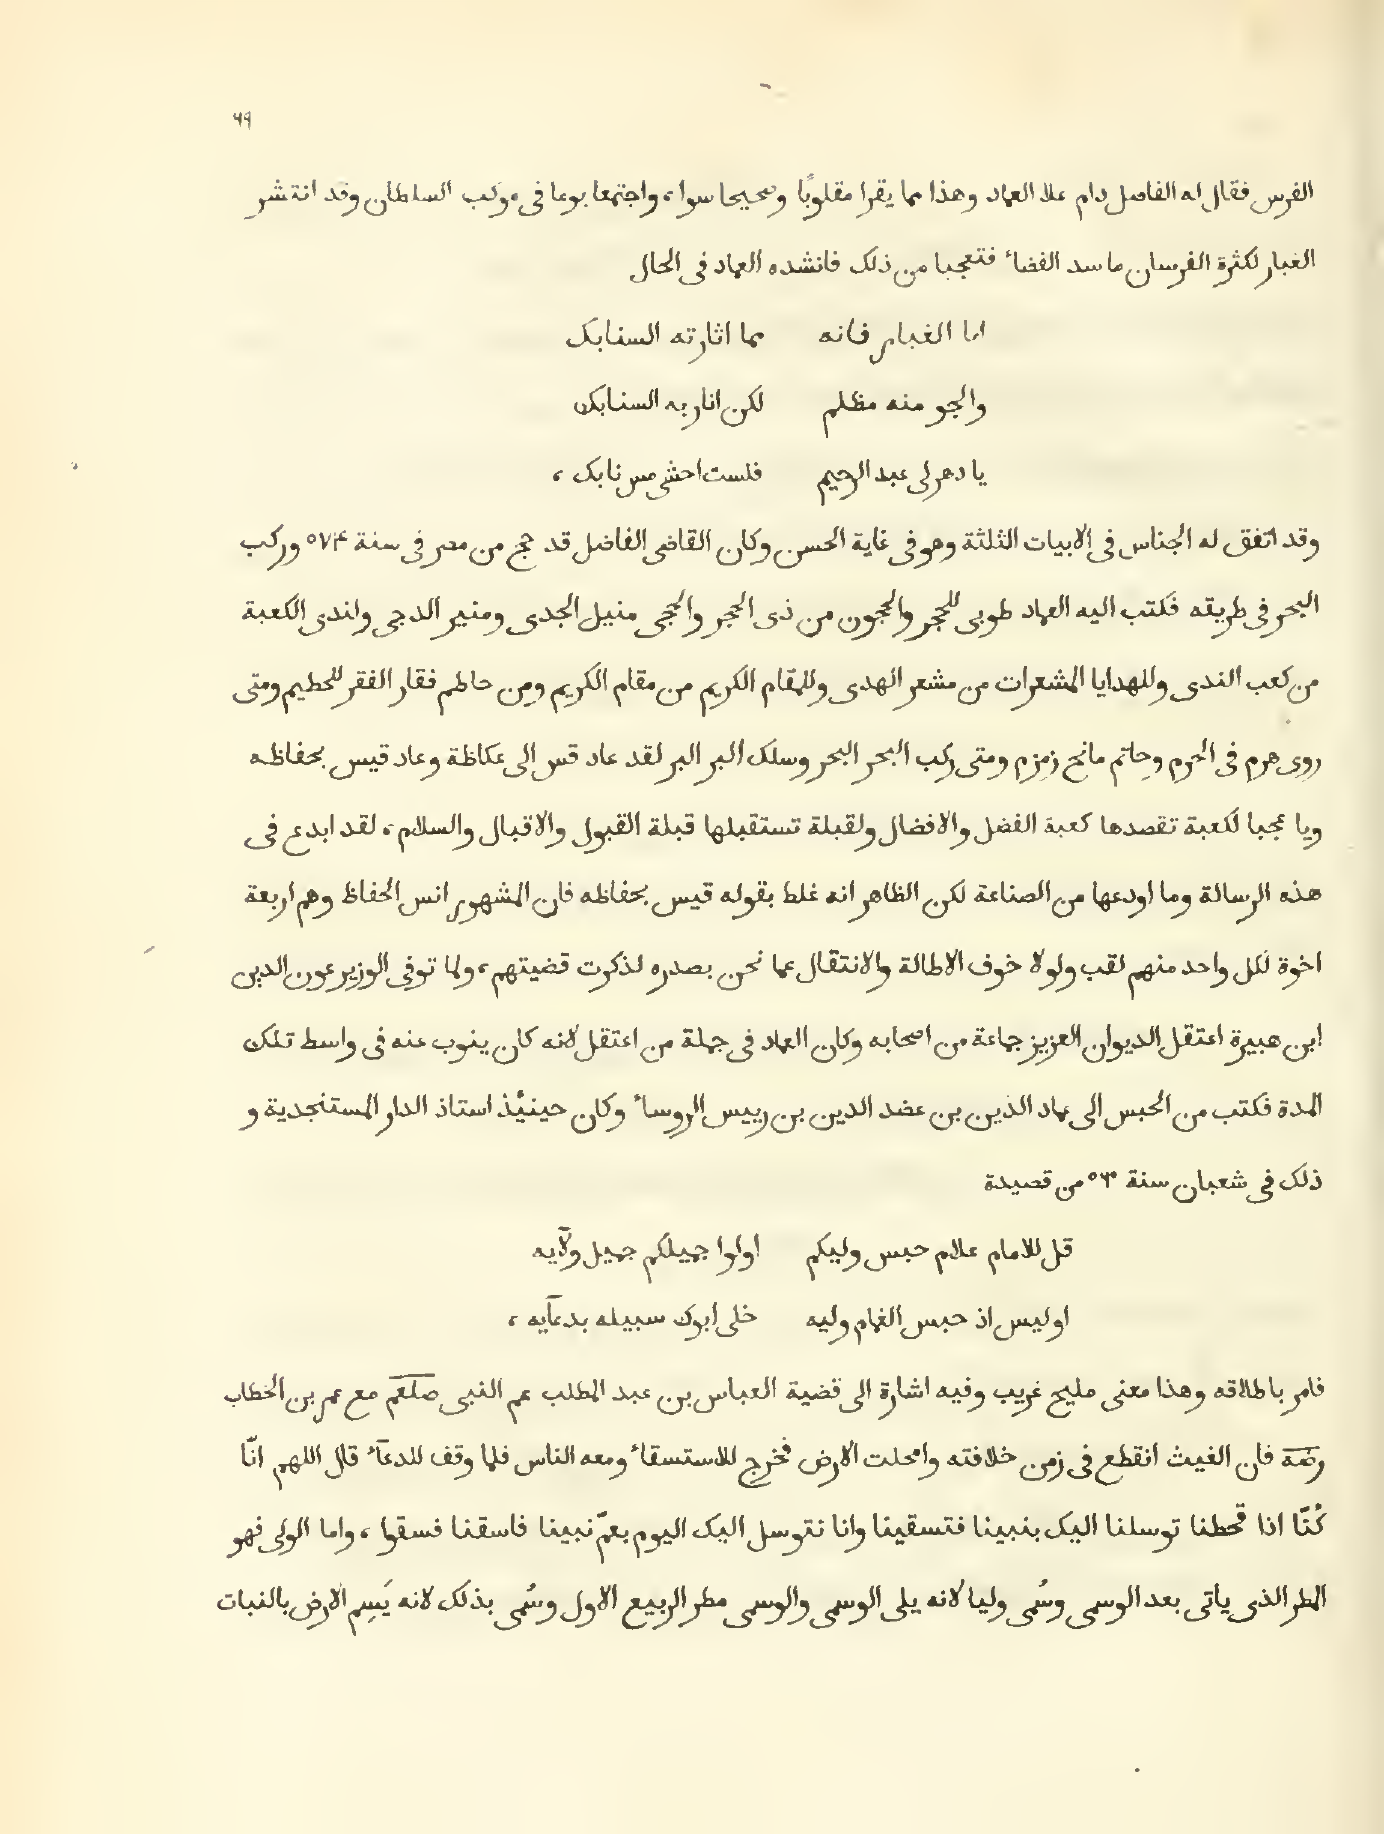 ٦٩
الفرس فقال له الفاضل دام علا العماد وهذا مما يقرا مقلوبًا وصحيحا سوا، واجتمعا يوما فى موكب السلطان وقد انتشر
الغبار لكثرة الفرسان ما سد الفضاء فتعجبا من ذلك فانشده العماد فى الحال
اما الغبار فانه مما اثارته السنابك
والجو منه مظلم لكن انار به السنابك
يا دهر لى عبد الرحيم فلست اخشى مس نابك،
وقد اتفق له الجناس فى الابيات الثلثة وهو فى غاية الحسن وكان القاضى الفاضل قد حج من مصر فى سنة ٥٧۴ وركب
البحر فى طريقه فكتب اليه العماد طوبى للحجر والحجون من ذى الحجر والحجى منيل الجدى ومنير الدجى واندى الكعبة
من كعب الندى وللهدايا المشعرات من مشعر الهدى وللمقام الكريم من مقام الكريم ومن حاطم فقار الفقر للحطيم ومتى
روى هرم فى الحرم وحاتم مانح زمزم ومتى ركب البحر البحر وسلك البر البر لقد عاد قس الى عكاظة وعاد قيس بحفاظه
ويا عجبا لكعبة تقصدها كعبة الفضل والافضال ولقبلة تستقبلها قبلة القبول والاقبال والسلام، لقد ابدع فى
هذه الرسالة وما اودعها من الصناعة لكن الظاهر انه غلط بقوله قيس بحفاظه فان المشهور انس الحفاظ وهم اربعة
اخوة لكل واحد منهم لقب ولولا خوف الاطالة والانتقال عما نحن بصدره لذكرت قضيتهم، ولما توفى الوزير عون الدين
ابن هبيرة اعتقل الديوان العزيز جماعة من اصحابه وكان العماد فى جملة من اعتقل لانه كان ينوب عنه فى واسط تلك
المدة فكتب من الحبس الى عماد الدين بن عضد الدين بن رييس الروساء وكان حينيئذ استاذ الدار المستنجدية و
ذلك فى شعبان سنة ٥٣٠ من قصيدة
قل للامام علام حبس وليكم اولوا جميلكم جميل ولآيه
اوليس اذ حبس الغمام وليه خلى ابوك سبيله بدعآيه،
فامر باطلاقه وهذا معنى مليح غريب وفيه اشارة الى قضية العباس بن عبد المطلب عم النبى صلعم مع عمر بن الخطاب
رضه فان الغيث انقطع فى زمن خلافته وامحلت الارض فخرج للاستسقاء ومعه الناس فلما وقف للدعآء قال اللهم انّا
كُنّا اذا قحطنا توسلنا اليك بنبينا فتسقينا وانا نتوسل اليك اليوم بعمّ نبينا فاسقنا فسقوا، واما الولى فهو
المطر الذى ياتى بعد الوسمى وسُمى وليا لانه يلى الوسمى والوسمى مطر الربيع الاول وسُمى بذلك لانه يَسِم الارض بالنبات